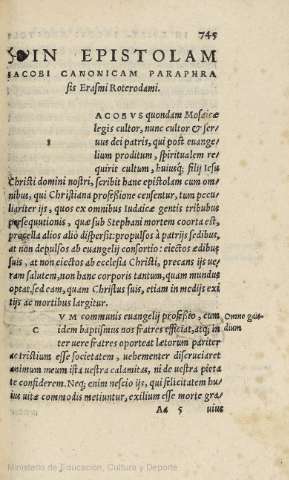 745
IN EPISTOLAM
IACOBI CANONICAM PARAPHRA
sis Erasmi Roterodami.
IACOBVS quondam Mosaicæ
legis cultor, nunc cultor & ser
uus dei patris, qui post euange
lium proditum, spiritualem re
quirit cultum, huiusq; filij Iesu
Christi domini nostri, scribit hanc epistolam cum om
nibus, qui Christiana professione censentur, tum pecu
liariter ijs, quos ex omnibus Iudaicæ gentis tribubus
persequutionis, quæ sub Stephani mortem coorta est,
procella alios aliò dispersit: propulsos à patrijs sedibus,
at non depulsos ab euangelij consortio: eiectos ędibus
suis, at non eiectos ab ecclesia Christi, precans ijs ue
ram salutem, non hanc corporis tantum, quam mundus
optat, sed eam, quam Christus suis, etiam in medijs exi
tijs ac mortibus largitur.
CVM communis euangelij professio, cum Omne gau
idem baptismus nos fratres efficiat, atq; in dium
ter uere fratres oporteat lætorum pariter
ac tristium esse societatem, uehementer discruciaret
animum meum ista uestra calamitas, ni de uestra pieta
te considerem. Neq; enim nescio ijs, qui felicitatem hu
ius uitæ commodis metiuntur, exilium esse morte gra
Aa 5 uius
Ministerio de Educación, Cultura y Deporte